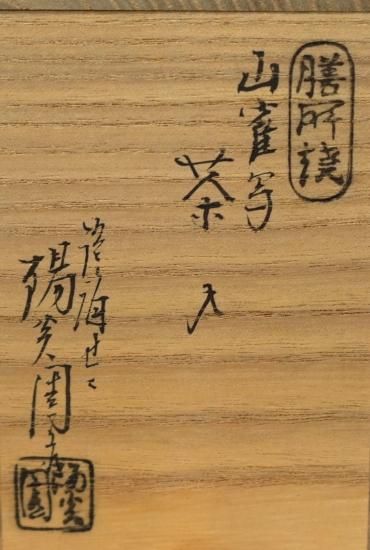 膳所燒
山雀写
茶入
陽炎園
陽炎園